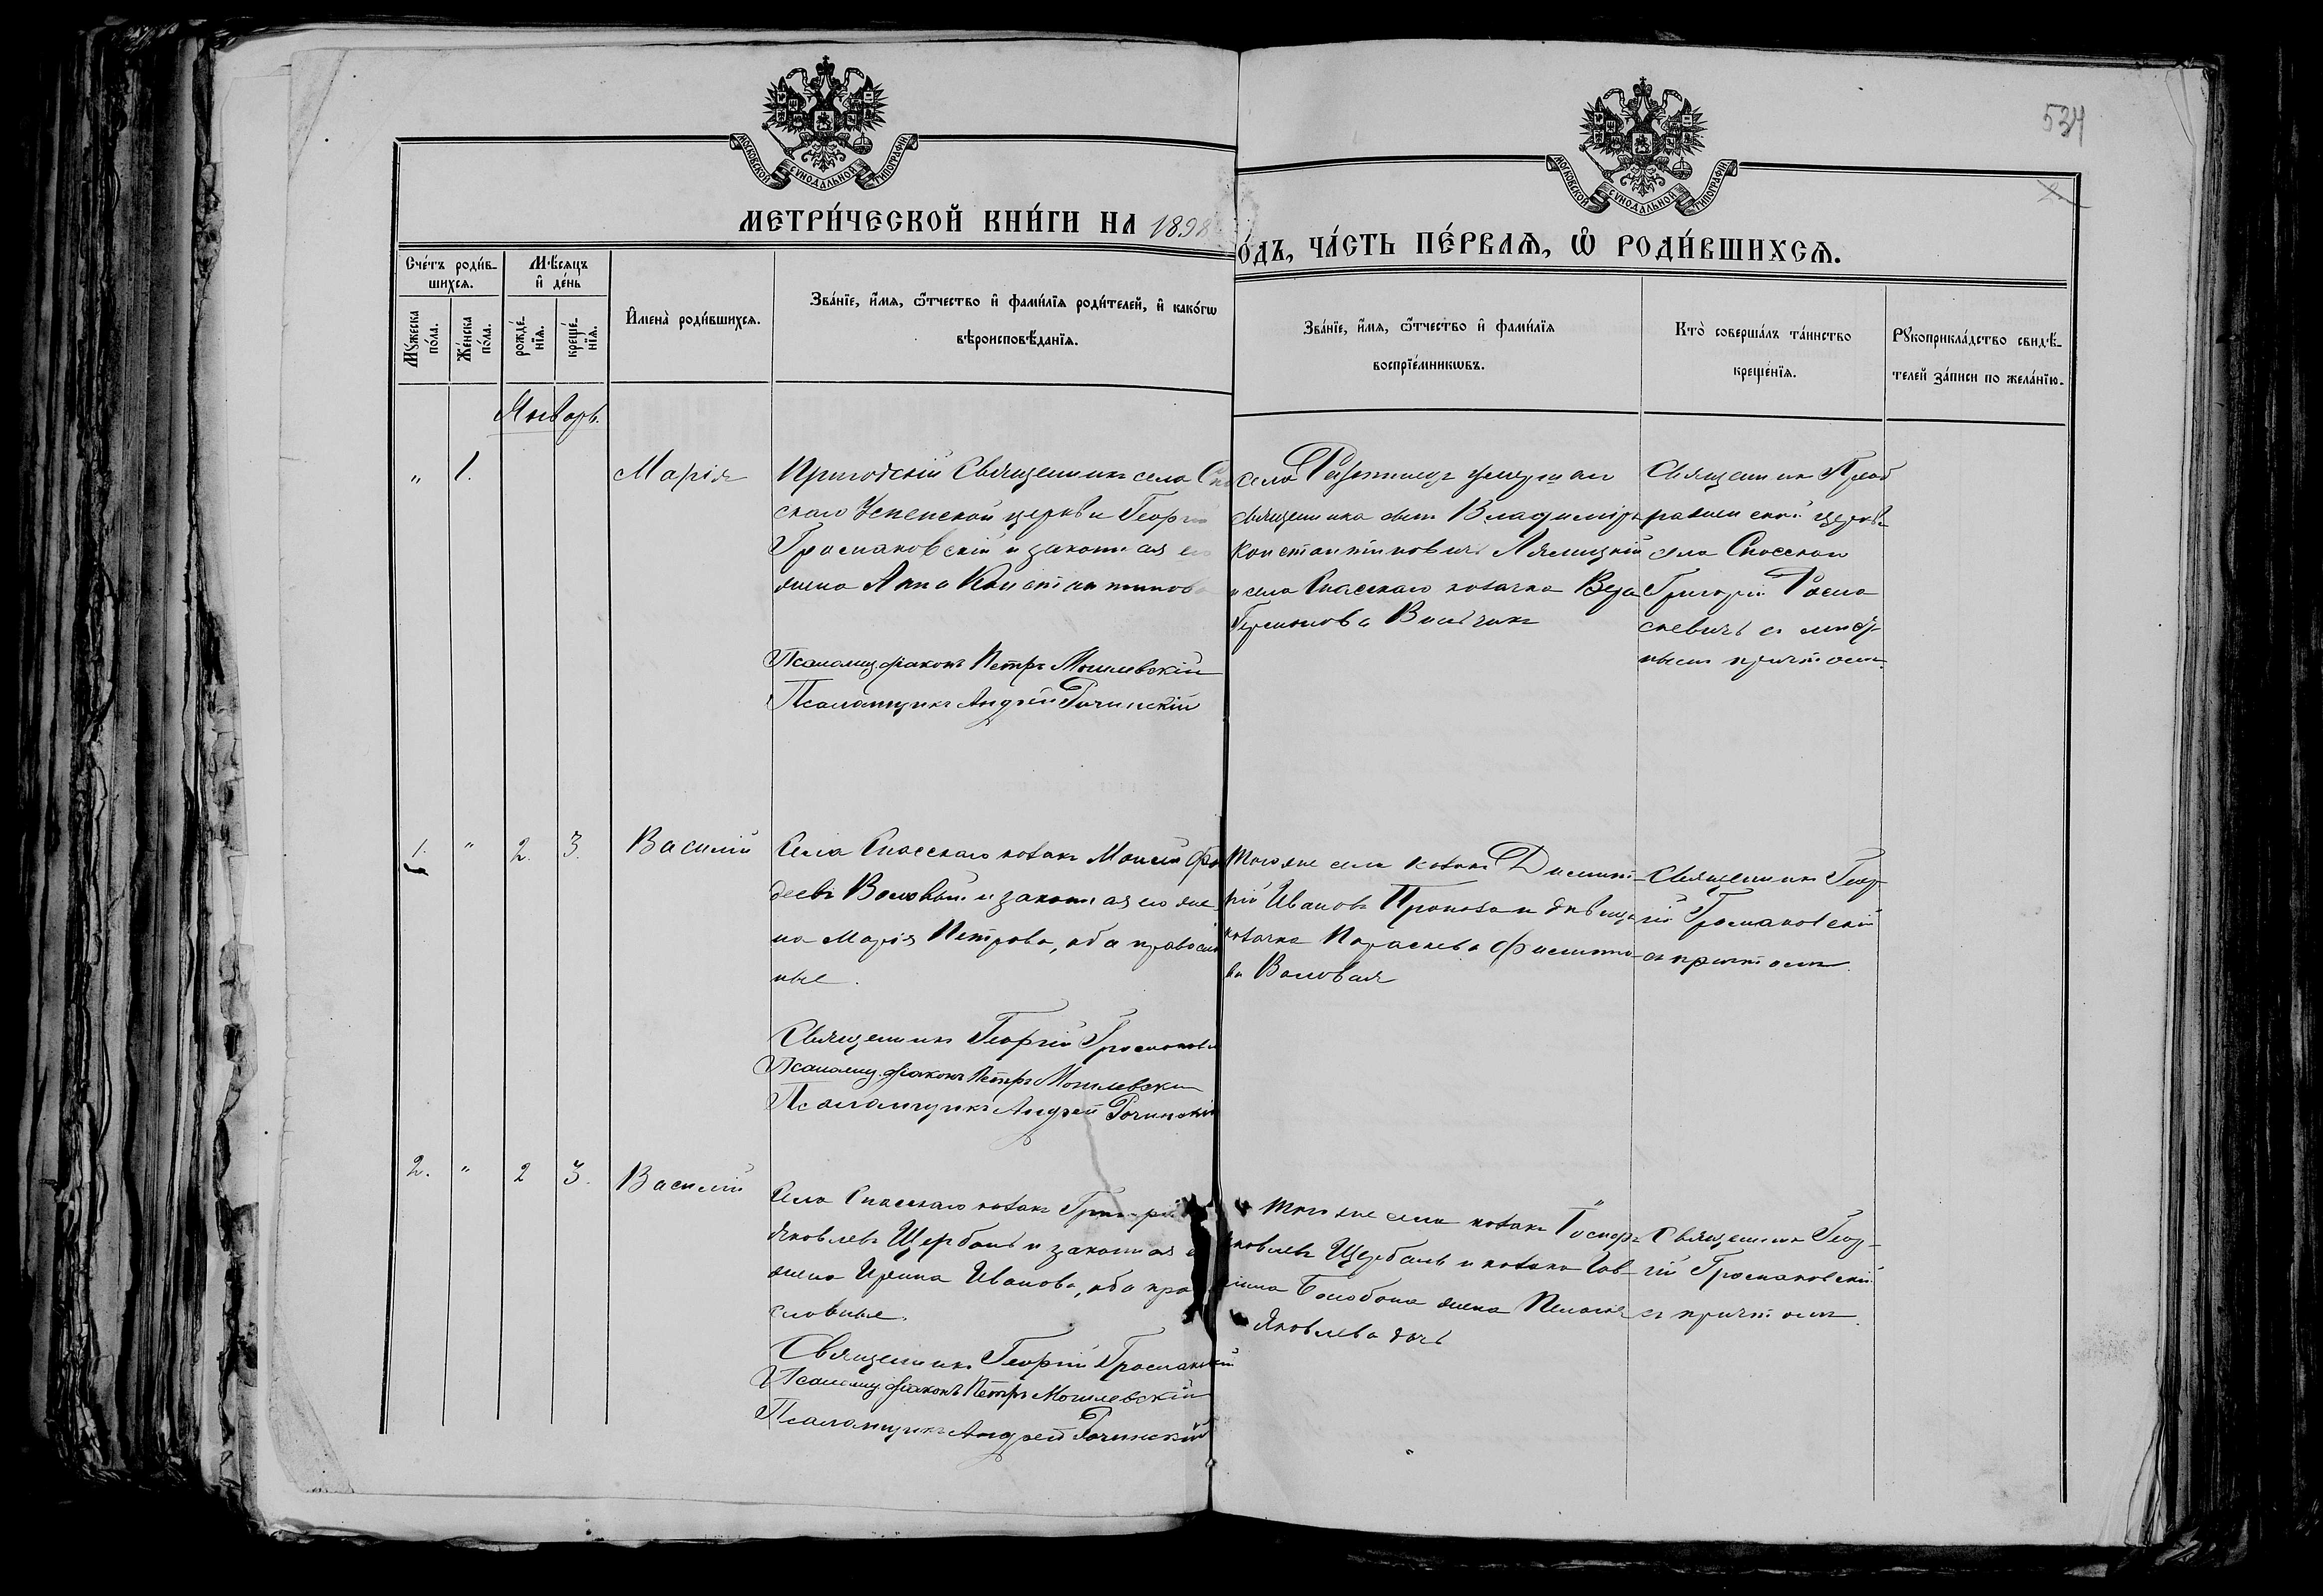 534
МОСКОВСКОЙ СѴНОДАЛЬНОЙ ТИПОГРАФІИ
МОСКОВСКОЙ СѴНОДАЛЬНОЙ ТИПОГРАФІИ
МЕТРИ́ЧЕСКОЙ КНИ́ГИ НА 1898
О́ДЪ, ЧА́СТЬ ПЕ́РВАѦ, Ѡ҆ РОДИ́ВШИХСѦ.
Сче́тъ роди́в-
шихсѧ.
Мѣ́сяцъ
и҆ де́нь
Мꙋ́жеска по́ла.
Же́нска по́ла.
рожде́-
нїѧ.
креще́-
нїѧ.
И҆мена̀ роди́вшихсѧ.
Зва́нїе, и҆́мѧ, ѻ҆́тчество и҆ фами́лїѧ роди́телей, и҆ како́гѡ
вѣроисповѣ́данїѧ.
Зва́нїе, и҆́мѧ, ѻ҆́тчество и҆ фами́лїѧ
воспрїе́мникѡвъ.
Кто̀ соверша́лъ та́инство
креще́нїѧ.
Рꙋкоприкла́дство свидѣ́-
телей за́писи по жела́нїю.
Январь.
" 1.
Марія
Приходскій Священникъ села
скаго Успенской церкви Георгій
Громаковскій и законная его
жена Анна Константинова
Псаломщ. діаконъ Петръ Могилевскій
Псаломщикъ Андрей
села умершаго
священника сынъ Владиміръ
Константиновичъ
и села Спасскаго козачка
Священникъ Преоб
раженской церкви
села Спасскаго
Григорій
съ
нымъ причтомъ.
1. " 2. 3.
Василій
Села Спасскаго козакъ Моисей
деевъ Воловый и законная его же
на Марія Петрова, оба правосла
ные.
Священникъ Георгій Громаковс
Псаломщ. діаконъ Петръ Могилевскій
Псаломщикъ Андрей
Того же села козакъ Димит-
рій Ивановъ и дѣвица
козачка Параскева
ва Воловая
Священникъ Геор-
гій Громаковскій
съ причтомъ.
2. " 2 3.
Василій
Села Спасскаго козакъ Григорій
Яковлевъ Щербань и законная е
жена Ирина Иванова, оба пра
славные.
Священникъ Георгій Громаковскій
Псаломщ. діаконъ Петръ Могилевскій
Псаломщикъ Андрей
Того же села козакъ Іосифъ
Яковлевъ Щербань и козака
жена
Яковлева дочь
Священникъ Геор-
гій Громаковскій
съ причтомъ.